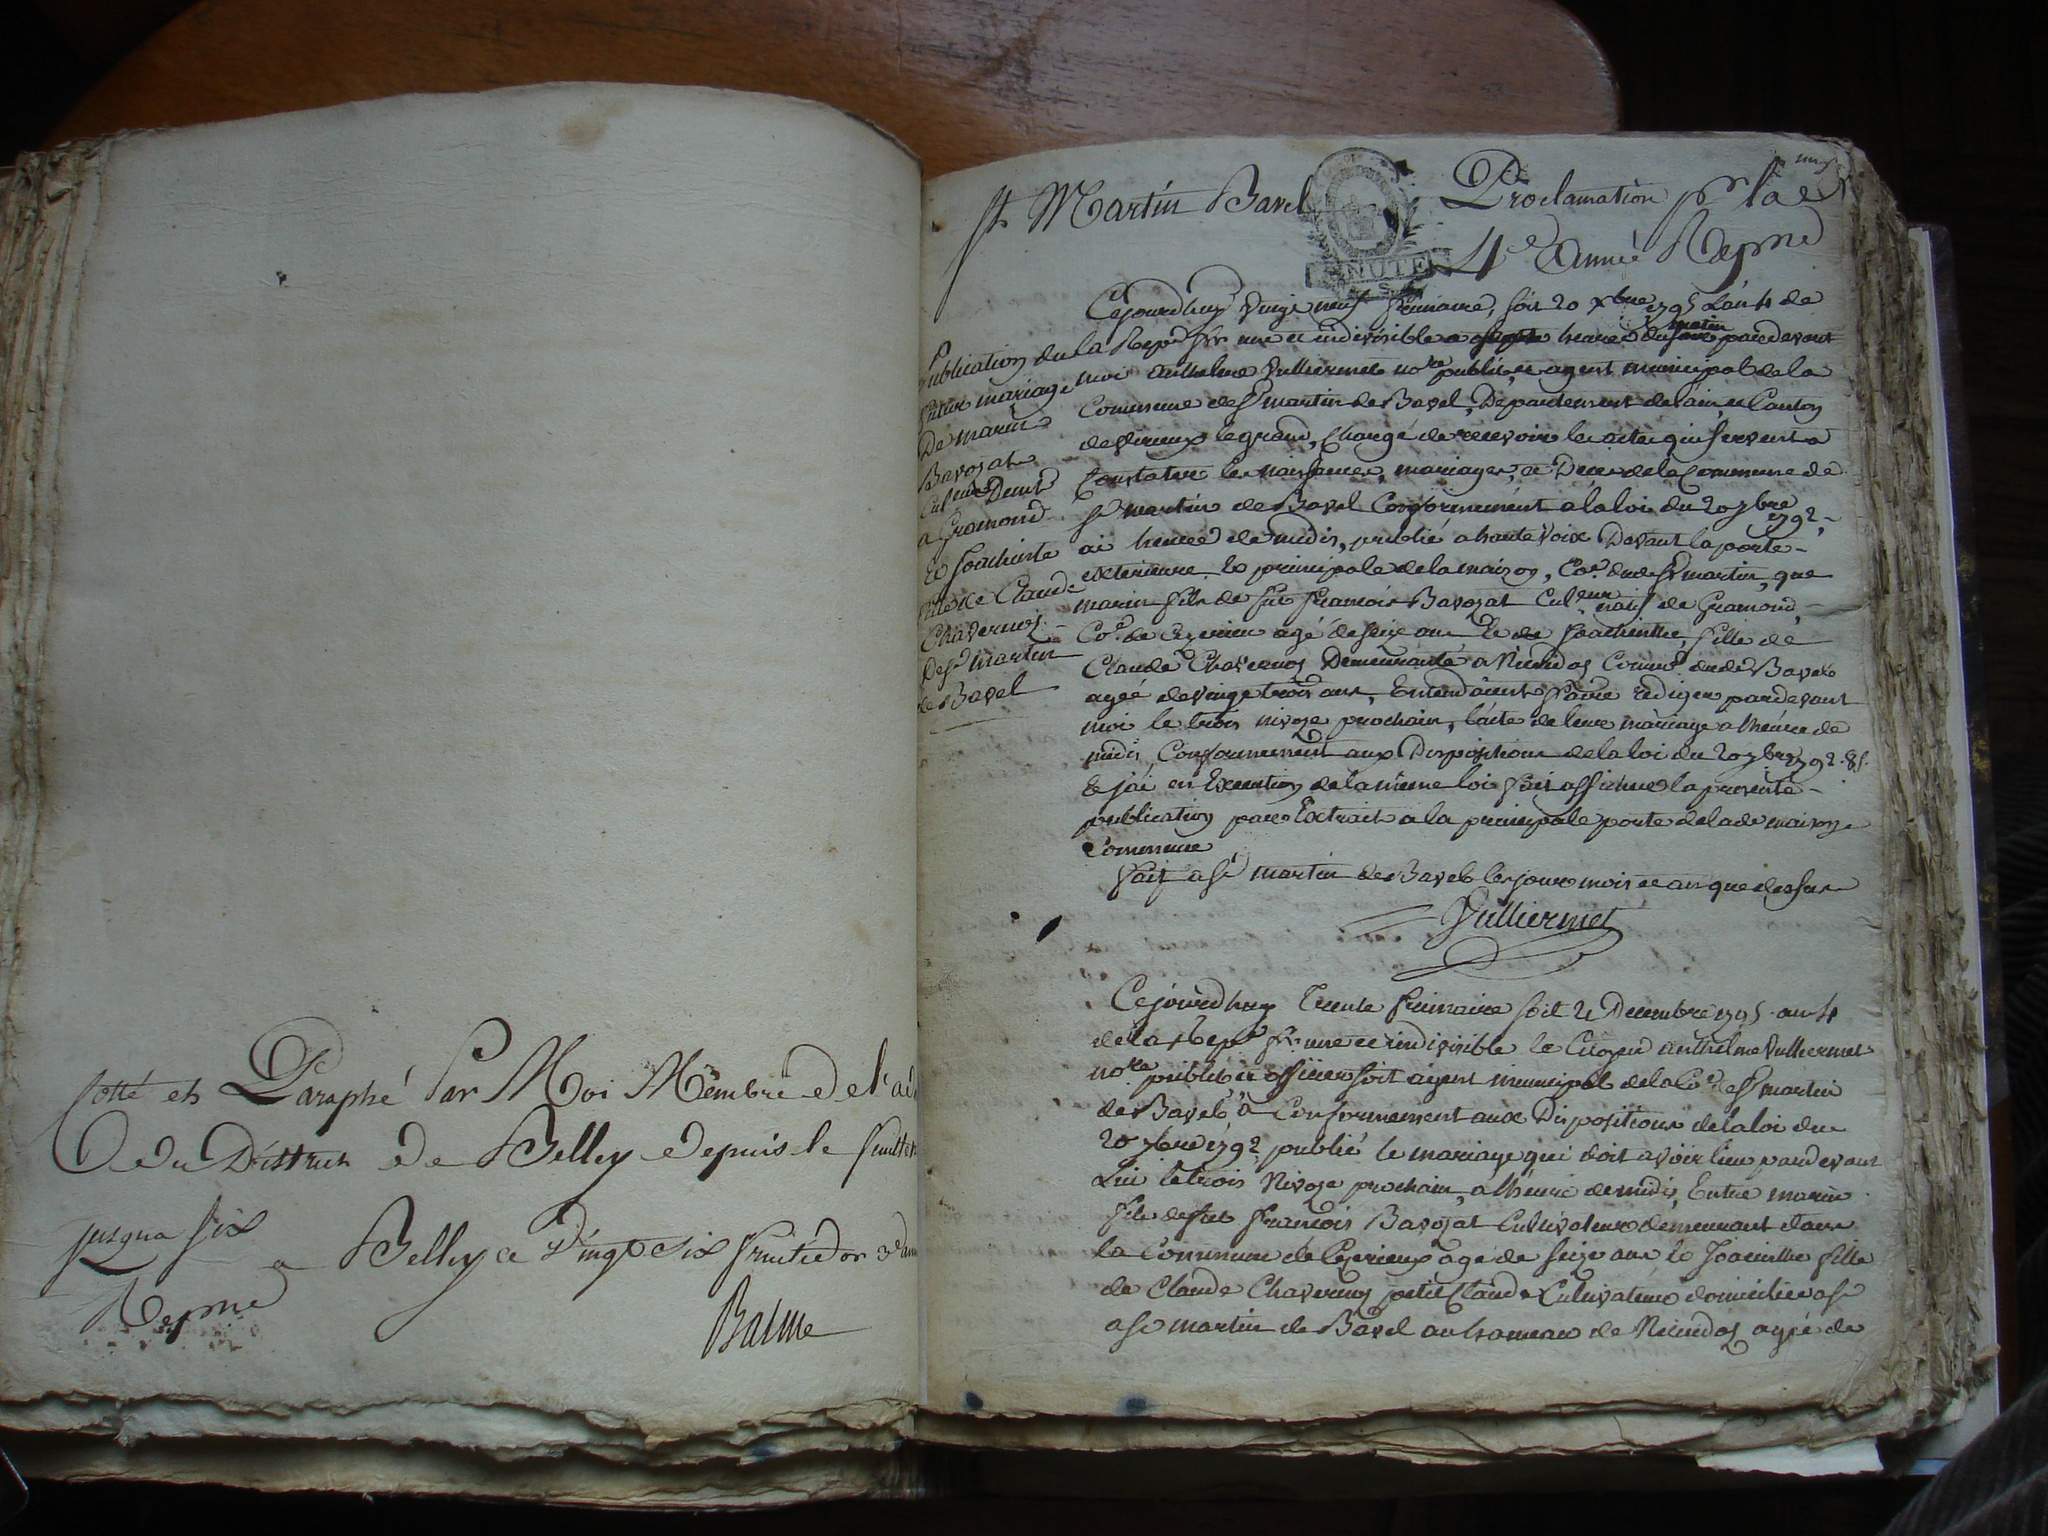 Cotté et Paraphé Par Moi Membre de l'ad
du District de Belley depuis le feuillet
jusqua six
a Belley ce vingt six fructidor 3e ann
Repne
Balme
St Martin Bavel
Proclamation pr la
4e année Repne
NUTE
Publication du
futur mariage
De marin
Bavozat
Culeur Demt
a Gramond
Et Joachinte
fille de Claude
Chavernoz
De St martin
de Bavel
Cejourdhuy vingt neuf frimaire, soit 20 Xbre 1795 L'an 4 de
la Repe fse une et indivisible a heure du matin pardevant
moi Anthelme Vulliermet nore public et agent municipal de la
Commune de St martin de Bavel, Departement de lain, et Canton
de virieux le grand, chargé de recevoir les actes qui servent a
Constater les naissances, mariages, et Deces de la Commune de
St martin de Bavel Conformément a la loi du 20 7bre 1792,
ai heure de midis, publié a haute voix Devant la porte
exterieure & principale de la maizon, Coe. dude St martin, que
marin fils de fut François Bavozat Culeur natif de Gramond,
Coe. de Cezerieu agé de seize ans Et de Joachinthe fille de
Claude Chavernoz Demeurante a Commne dude Bavel
agéé de vingt trois ans, Entendaient faire rediger pardevant
moi le trois nivoze prochain, l'acte de leur mariage a lheure de
midis Conformement aux Dispositions de la loi du 20 7bre 1792
& jai en Execution de la même loi fait afficher la presente
publication par Extrait a la principale porte de lade maizon
Commune
Fait a St martin de Bavel les jour mois et an que dessus
Vulliermet
Cejourdhuy Trente frimaire soit 21 Decembre 1795 an 4
de la Repe fse une et indivisible le Citoyen anthelme Vulliermet
nore public et officier soit agent municipal de la Coe de St martin
de Bavel a Conformement aux Dispositions de la loi du
20 7bre 1792 publié le mariage qui doit avoir lieu pardevant
Lui le trois Nivoze prochain, a lheure de midis, Entre marin
fils de fut François Bavozat Cultivateur demeurant dans
la Commune de Cezerieux agé de seize ans & Joacinthe fille
de Claude Chavernoz petit Claude Cultivateur domicilié
a St martin de Bavel au hameau de agéé de